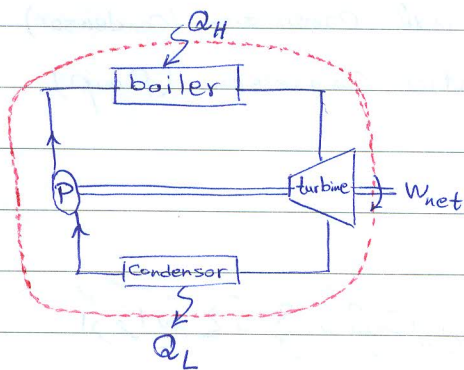 QH
boiler
P
turbine
Wnet
Condensor
QL